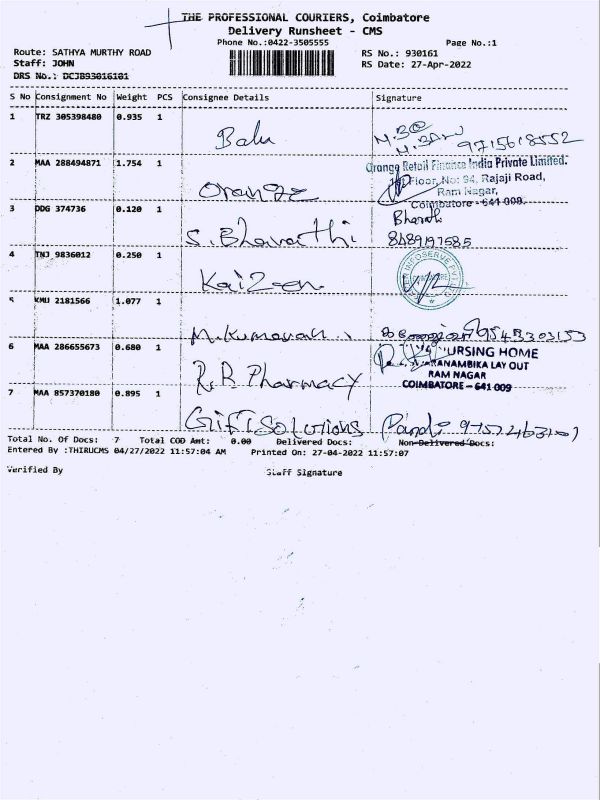 THE PROFESSIONAL COURIERS, Coimbatore
Delivery Runsheet - CMS
Phone No.:0422-3505555 Page No.:1
Route: SATHYA MURTHY ROAD RS No.: 930161
Staff: JOHN RS Date: 27-Apr-2022
DRS No.: DCJB93016101
S No Consignment No Weight PCS Consignee Details Signature
1 TRZ 305398480 0.935 1
Balu 9715618552
2 MAA 288494871 1.754 1 Orange Retail Finance India Private Limited.
Floor, No: 94, Rajaji Road,
Orange Ram Nagar,
Coimbatore - 641 009.
3 DDG 374736 0.120 1 Bharathi
S. Bharathi 8489197585
4 TNJ 9836012 0.250 1 INFOSERVE
Kaizen
5 KMU 2181566 1.077 1
M. Kumaran
6 MAA 286655673 0.680 1 NURSING HOME
LAY OUT
RAM NAGAR
R.R. Pharmacy COIMBATORE - 641 009
7 MAA 857370180 0.895 1
Gift Solutions
Total No. Of Docs: 7 Total COD Amt: 0.00 Delivered Docs: Non-Delivered Docs:
Entered By :THIRUCMS 04/27/2022 11:57:04 AM Printed On: 27-04-2022 11:57:07
Verified By Staff Signature